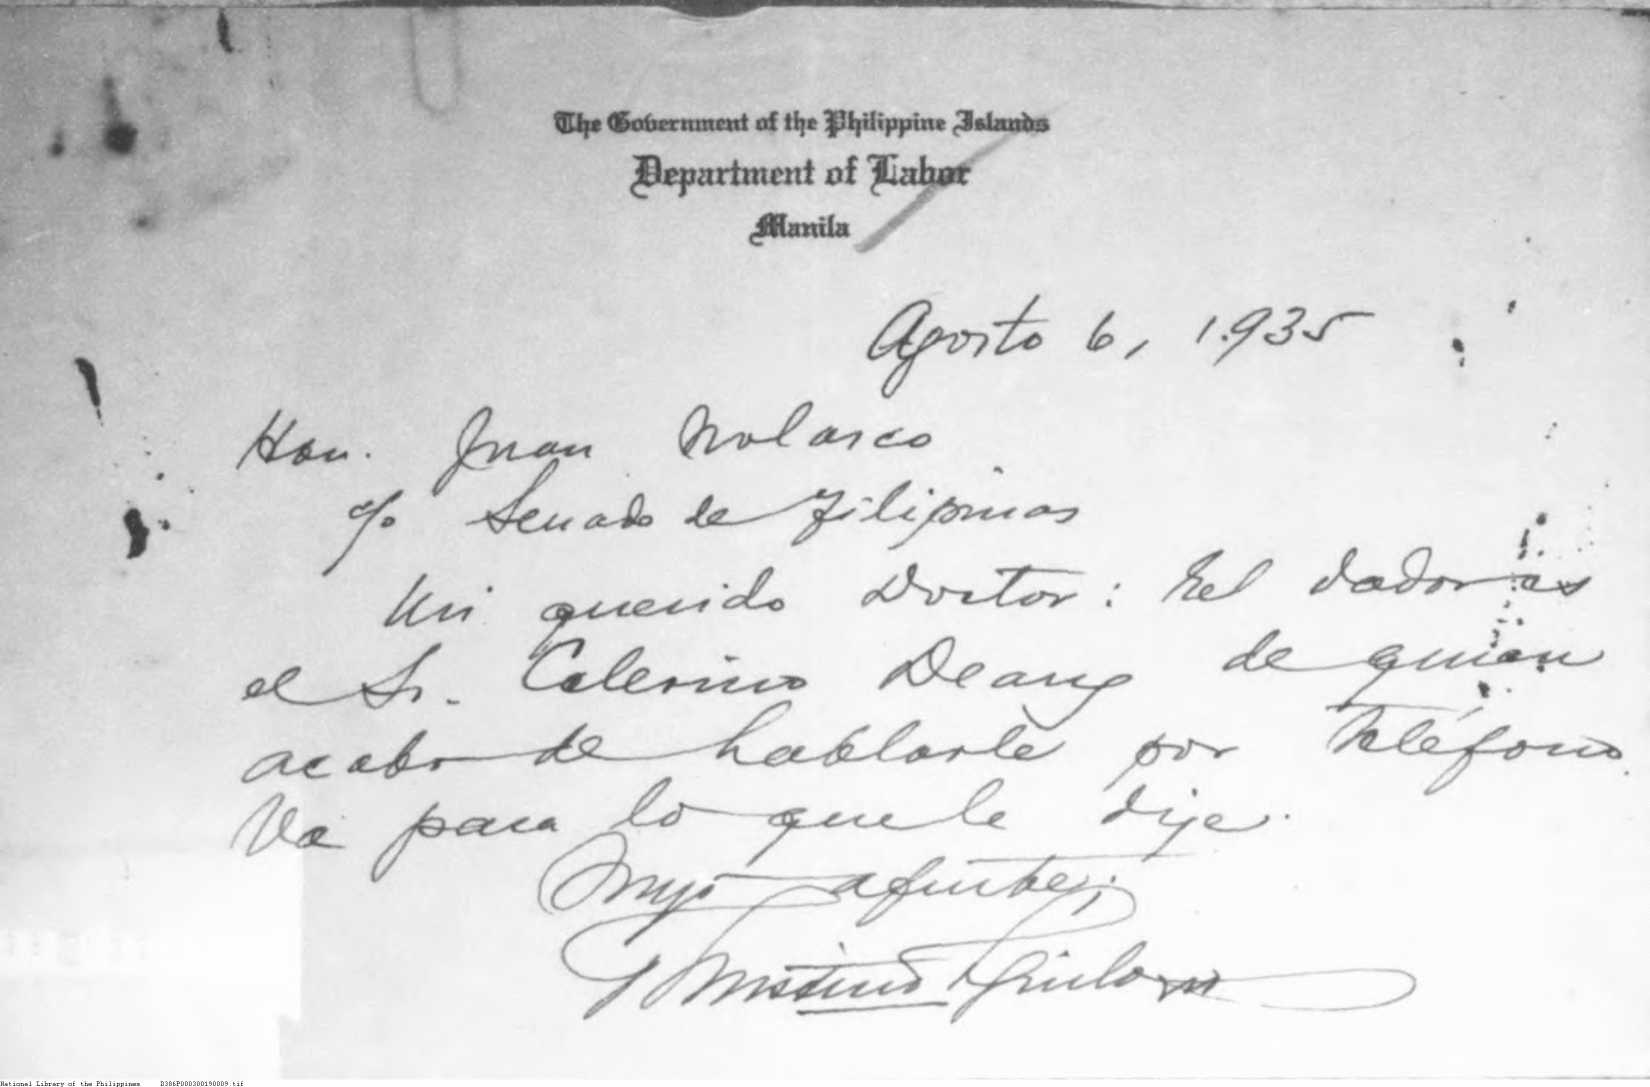 The Government of the Philippine Islands
Department of Labor
Manila
Agosto 6, 1935
Hon. Juan Nolasco
c/o Senado de Filipinas
Mi querido Doctor: El dador es
el Sr. Celerino Deang de quien
acabo de hablarle por teléfono.
Va para lo que le dije.
Suyo afmte.;
National Library of the Philippines D386P000300190009.tif